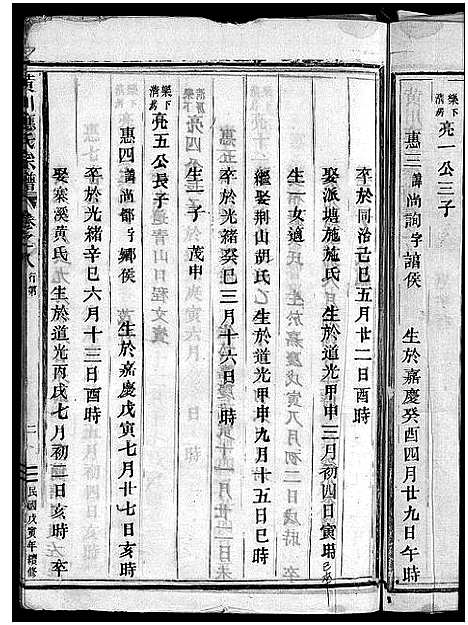 樂下清房
亮一公三子
惠三 諱尚詢字諮侯 生於嘉慶癸酉四月廿九日午時
卒於同治己巳五月廿二日酉時
娶派塘施施氏 生於道光甲申三月初四日寅時
生一女適
繼娶荆山胡氏 生於道光甲申九月十五日巳時
卒於光緒癸巳三月十六日
生一子 茂申
樂下清房
亮五公長子
惠四 諱尚都字鄉侯 生於嘉慶戊寅七月廿七日亥時
卒於光緒辛巳六月十三日酉時
娶寨溪黃氏 生於道光丙戌七月初二日亥時 卒
黃川應氏宗譜 卷之八 行第
二
民國戊寅年續修